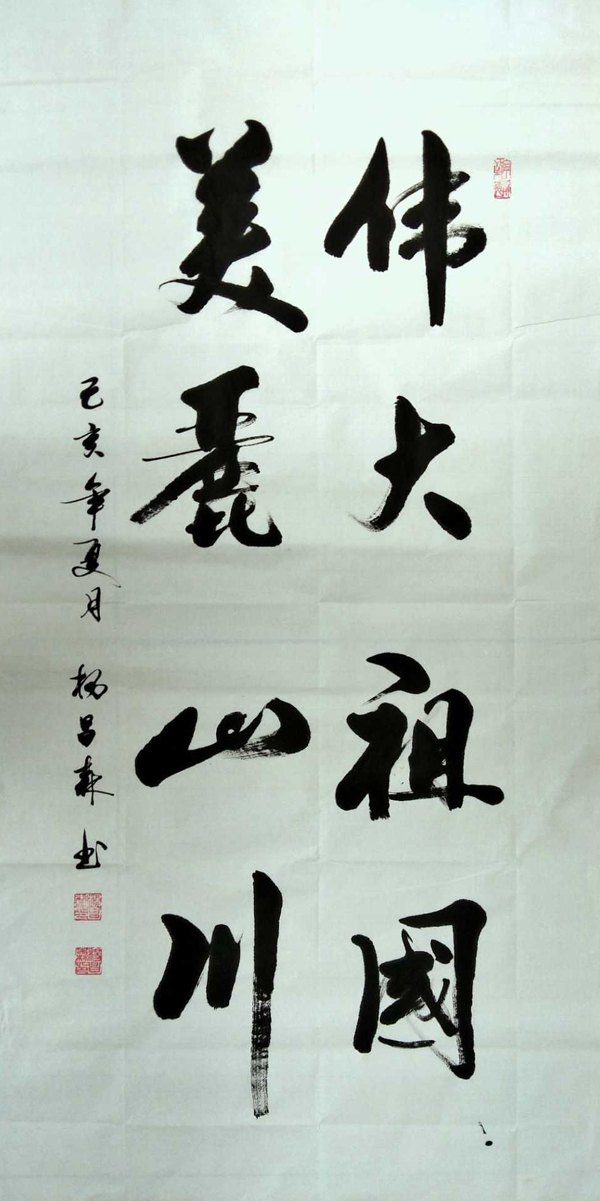 伟大祖國
美麗山川
己亥年夏月 杨昌森书